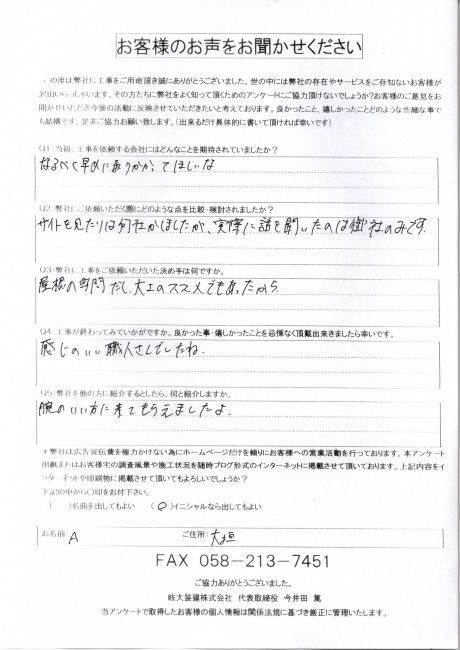 お客様のお声をお聞かせください
この度は弊社に工事をご用命頂き誠にありがとうございました。世の中には弊社の存在やサービスをご存知ないお客様が
沢山いらっしゃいます。その方たちに弊社をよく知って頂くためのアンケートにご協力頂けないでしょうか?お客様のご意見をお
聞かせいただき今後の活動に反映させていただきたいと考えております。良かったこと、嬉しかったことどのような些細な事で
も結構です。是非ご協力お願い致します。(出来るだけ具体的に書いて頂ければ幸いです)
Q1:当初、工事を依頼する会社にはどんなことを期待されていましたか?
なるべく早めに取りかかってほしいな
Q2:弊社にご依頼いただく際にどのような点を比較・検討されましたか?
サイトを見たりは何社かしましたが、実際に話を聞いたのは御社のみです.
Q3:弊社に工事をご依頼いただいた決め手は何ですか。
屋根の専門だし、大工のススメでもあったから.
Q4:工事が終わってみていかがですか。良かった事・嬉しかったことを忌憚なく頂戴出来きましたら幸いです。
感じのいい職人さんでしたね.
Q5:弊社を他の方に紹介するとしたら、何と紹介しますか。
腕のいい方に来てもらえましたよ.
*弊社は広告宣伝費を極力かけない為にホームページだけを頼りにお客様への営業活動を行っております。本アンケート
用紙またはお客様宅の調査風景や施工状況を随時ブログ形式のインターネットに掲載させて頂いております。上記内容をイ
ンターネットや印刷物に掲載させて頂いてもよろしいでしょうか?
下記の中から〇印をお付下さい。
( )名前を出してもよい (〇)イニシャルなら出してもよい
お名前: A ご住所: 大垣
FAX 058-213-7451
ご協力ありがとうございました。
岐大装建株式会社 代表取締役 今井田 篤
当アンケートで取得したお客様の個人情報は関係法規に基づき厳正に管理いたします。